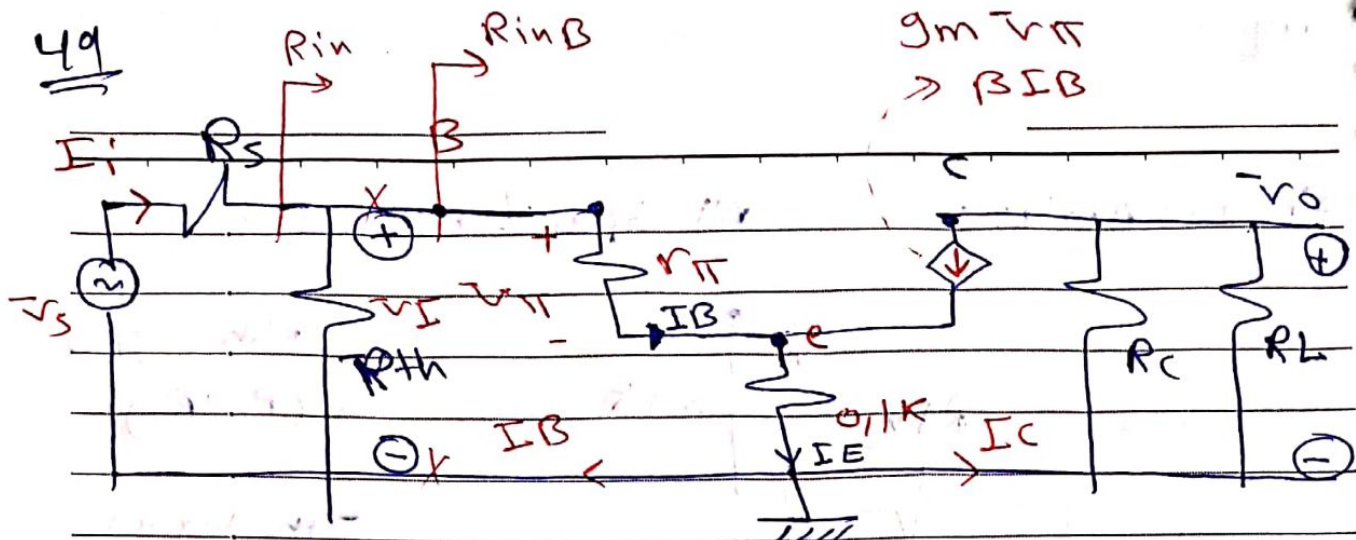 49
Rin
RinB
gm vπ
≫ βIB
Ii
Rs
B
C
vo
+
x
+
rπ
vs
vI
vπ
-
IB
e
Rth
Rc
RL
0,1K
-
x
IB
IE
IC
-